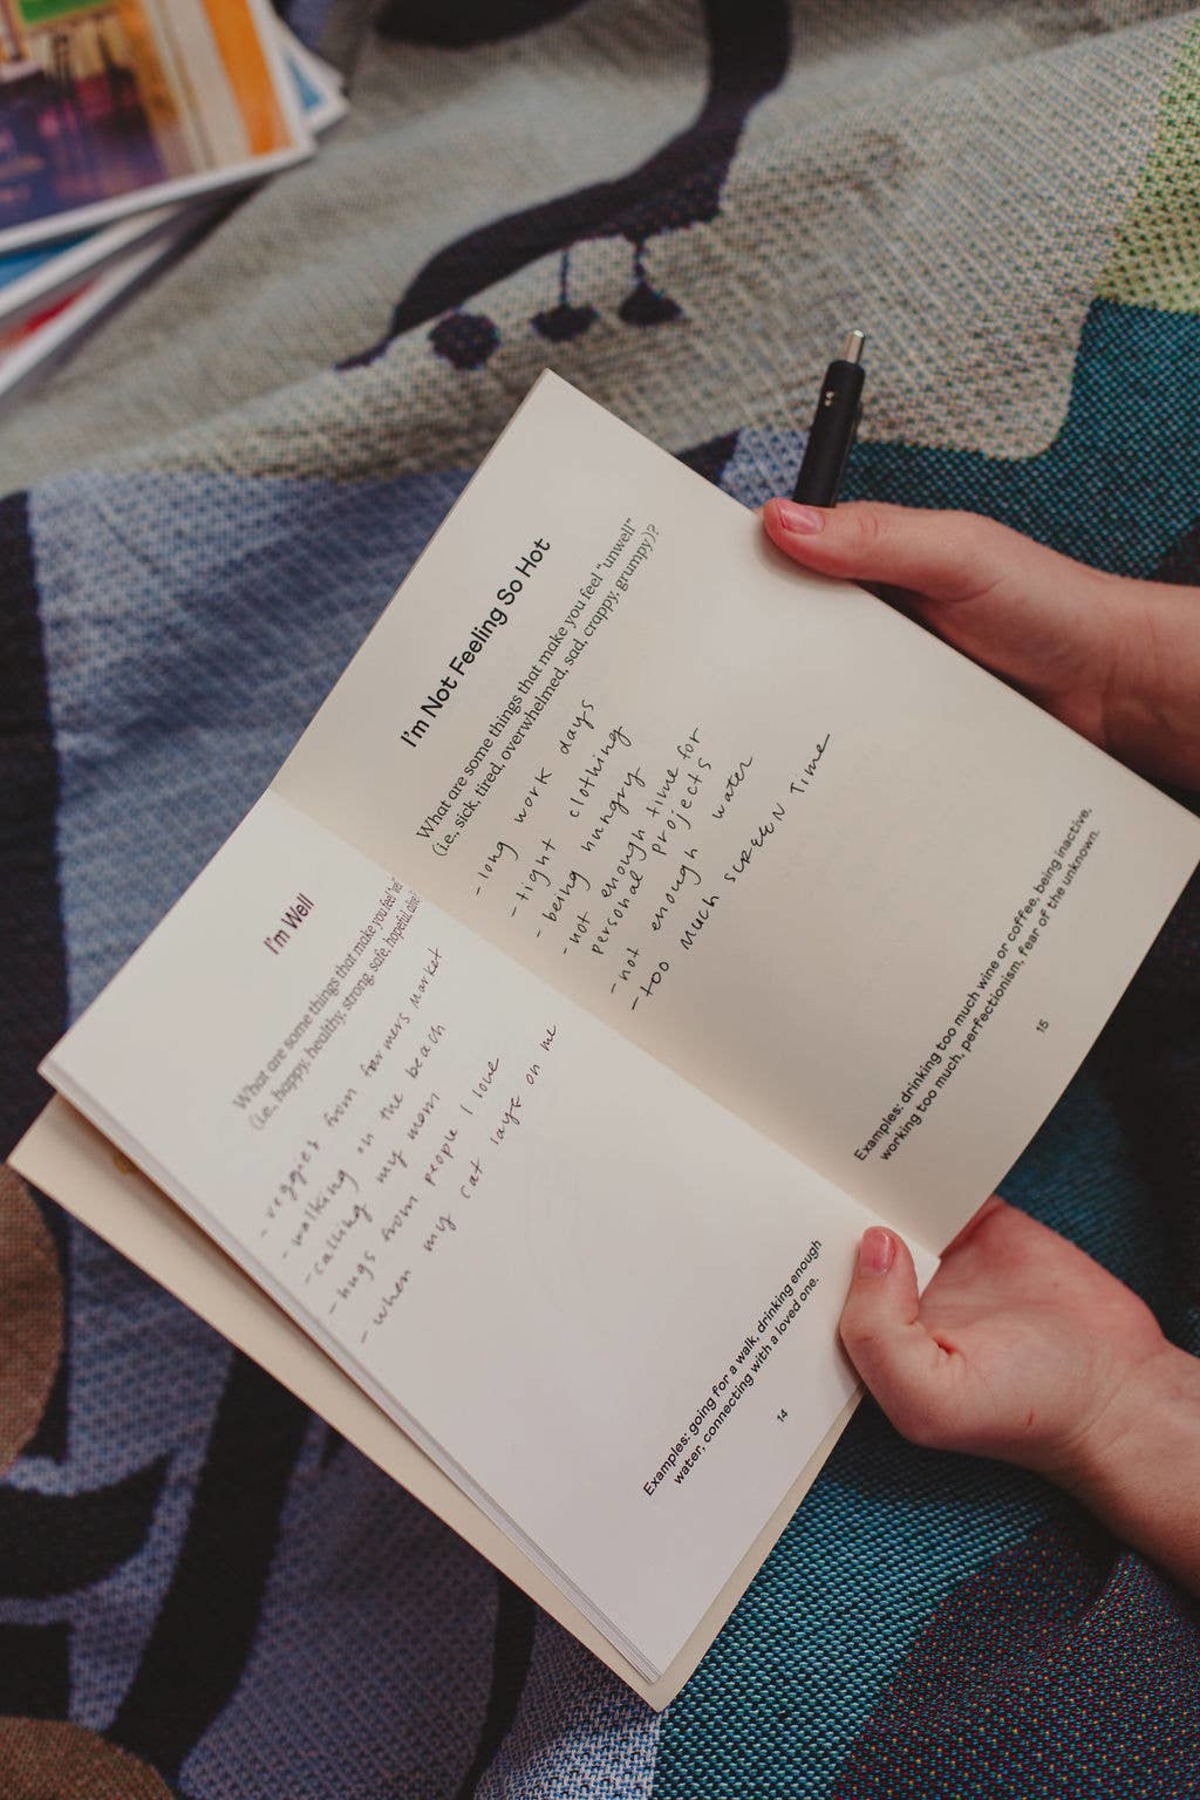 I'm Well
What are some things that make you feel "well"
(i.e., happy, healthy, strong, safe, hopeful, alive)?
- veggies from farmers market
- walking on the beach
- calling my mom
- hugs from people I love
- when my cat lays on me
Examples: going for a walk, drinking enough
water, connecting with a loved one.
14
I'm Not Feeling So Hot
What are some things that make you feel "unwell"
(i.e., sick, tired, overwhelmed, sad, crappy, grumpy)?
- long work days
- tight clothing
- being hungry
- not enough time for
personal projects
- not enough water
- too much SCREEN TIME
Examples: drinking too much wine or coffee, being inactive,
working too much, perfectionism, fear of the unknown.
15